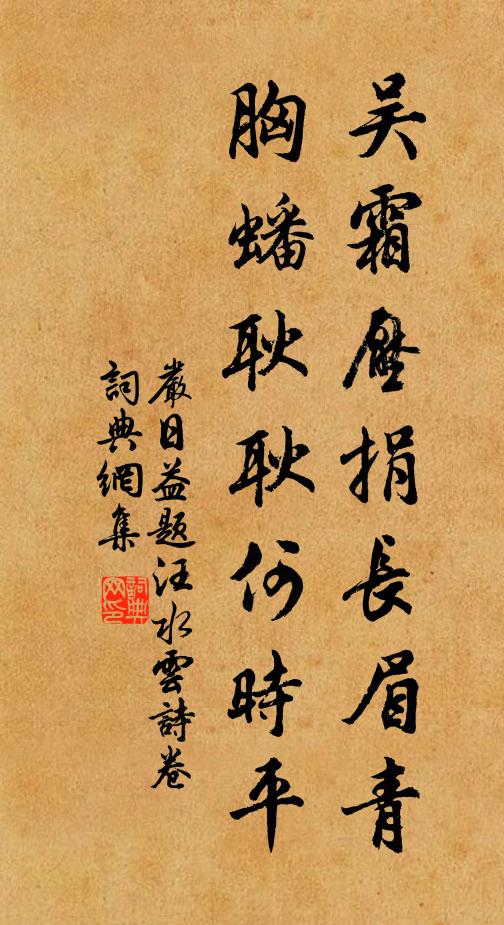 吴霜壓捐長眉青
胸蟠耿耿何時平
嚴日益題汪水雲詩卷
詞典網集
詞典網印